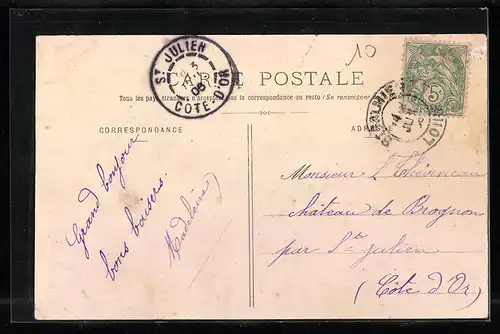 10
ST JULIEN
3
05
COTE D'OR
CARTE POSTALE
Tous les pays étrangers n'acceptent pas la correspondance au recto (Se renseigner
CORRESPONDANCE
ADRES
5c
LOIRE
Grand bonjour
bons baisers
Madeleine
Monsieur L Théveneau
château de Brognon
par St Julien
(Côte d'Or)